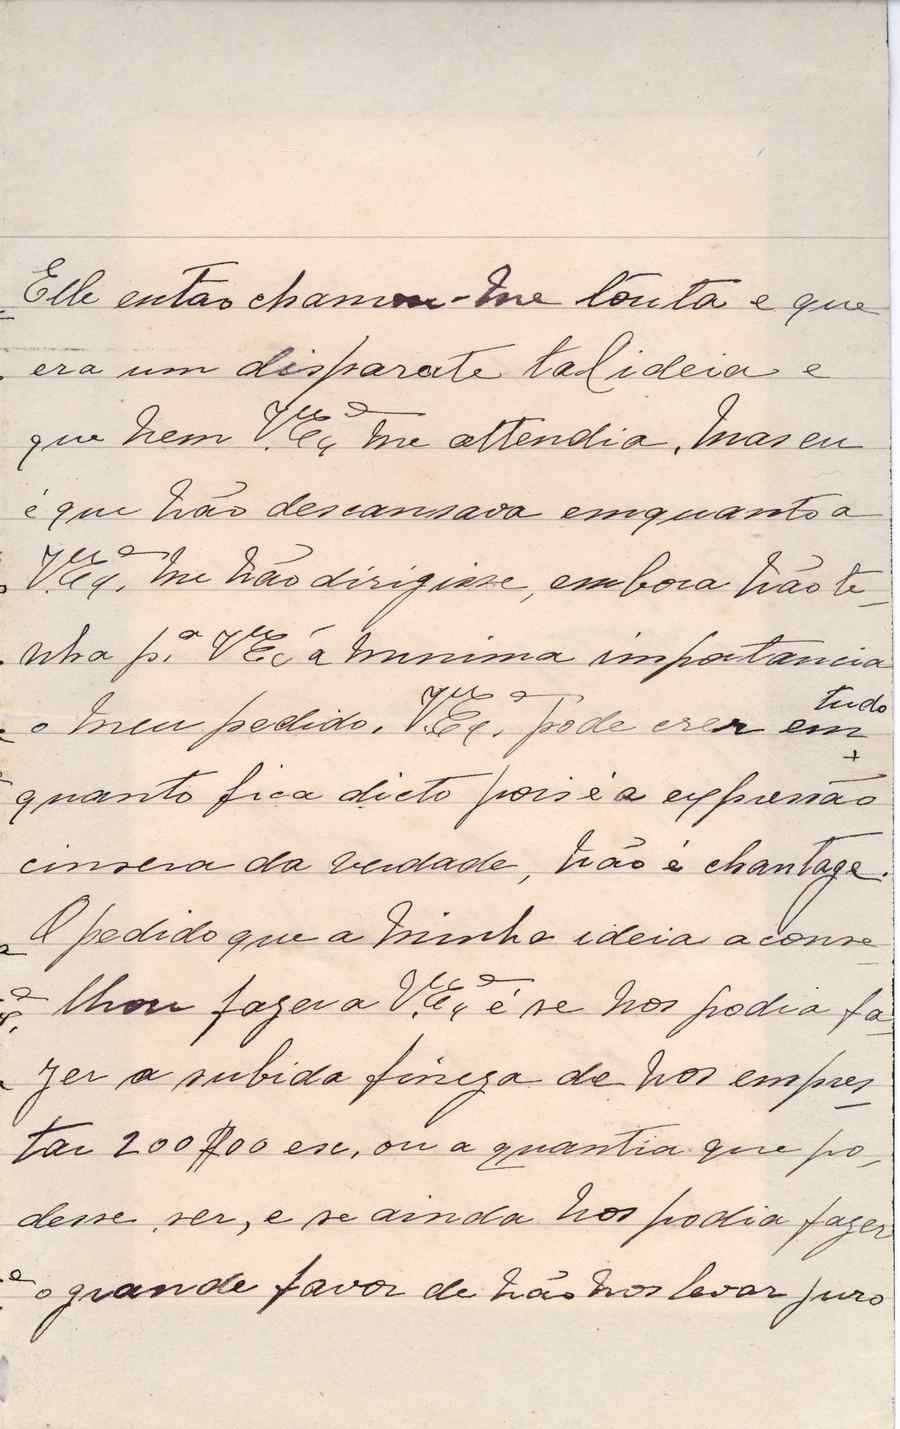 Elle então chamou-me louta e que
era um disparate tal ideia e
que nem V. Ex.ª me attendia. Mas eu
é que não descansava emquanto a
V. Ex.ª me não dirigisse, embora não te-
nha p.ª V. Ex.ª a minima importancia
o meu pedido. V. Ex.ª pode crer em tudo
quanto fica dicto pois é a expressão
cinsera da verdade, não é chantage.
O pedido que a minha ideia aconse-
lhou fazer a V. Ex.ª é se nos podia fa-
zer a subida fineza de nos empres-
tar 200$00 esc, ou a quantia que po-
desse ser, e se ainda nos podia fazer
o grande favor de não nos levar juro